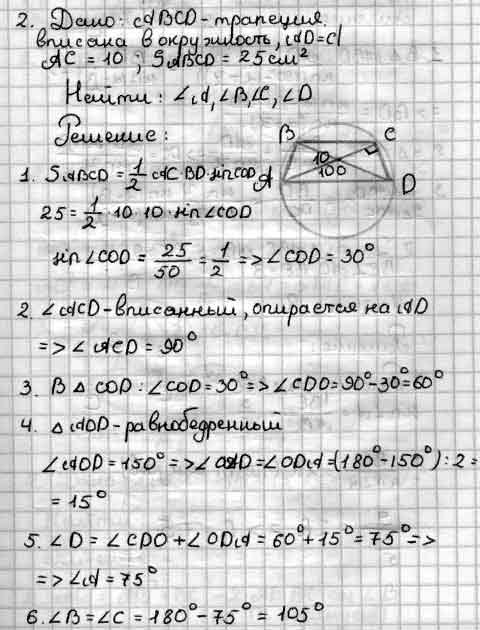 2. Дано: ABCD - трапеция
вписана в окружность, AD = d
AC = 10 ; SABCD = 25 см²
Найти: ∠A, ∠B, ∠C, ∠D
Решение:
B C
10
100
A D
1. SABCD = 1/2 AC·BD·sin COD
25 = 1/2 · 10·10·sin∠COD
sin∠COD = 25/50 = 1/2 => ∠COD = 30°
2. ∠ACD - вписанный, опирается на AD
=> ∠ACD = 90°
3. В △ COD: ∠COD = 30° => ∠CDO = 90° - 30° = 60°
4. △ AOD - равнобедренный
∠AOD = 150° => ∠OAD = ∠ODA = (180° - 150°) : 2 =
= 15°
5. ∠D = ∠CDO + ∠ODA = 60° + 15° = 75° =>
=> ∠A = 75°
6. ∠B = ∠C = 180° - 75° = 105°